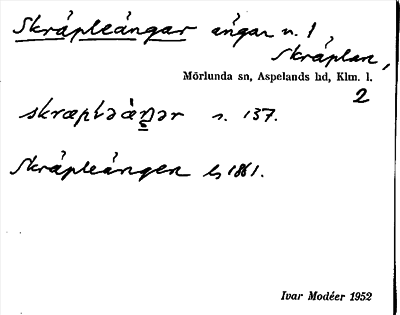 Skråpleångar ångar n. 1,
Skråplan,
Mörlunda sn, Aspelands hd, Klm. l.
2
s. 137.
Skråpleången 1861.
Ivar Modéer 1952